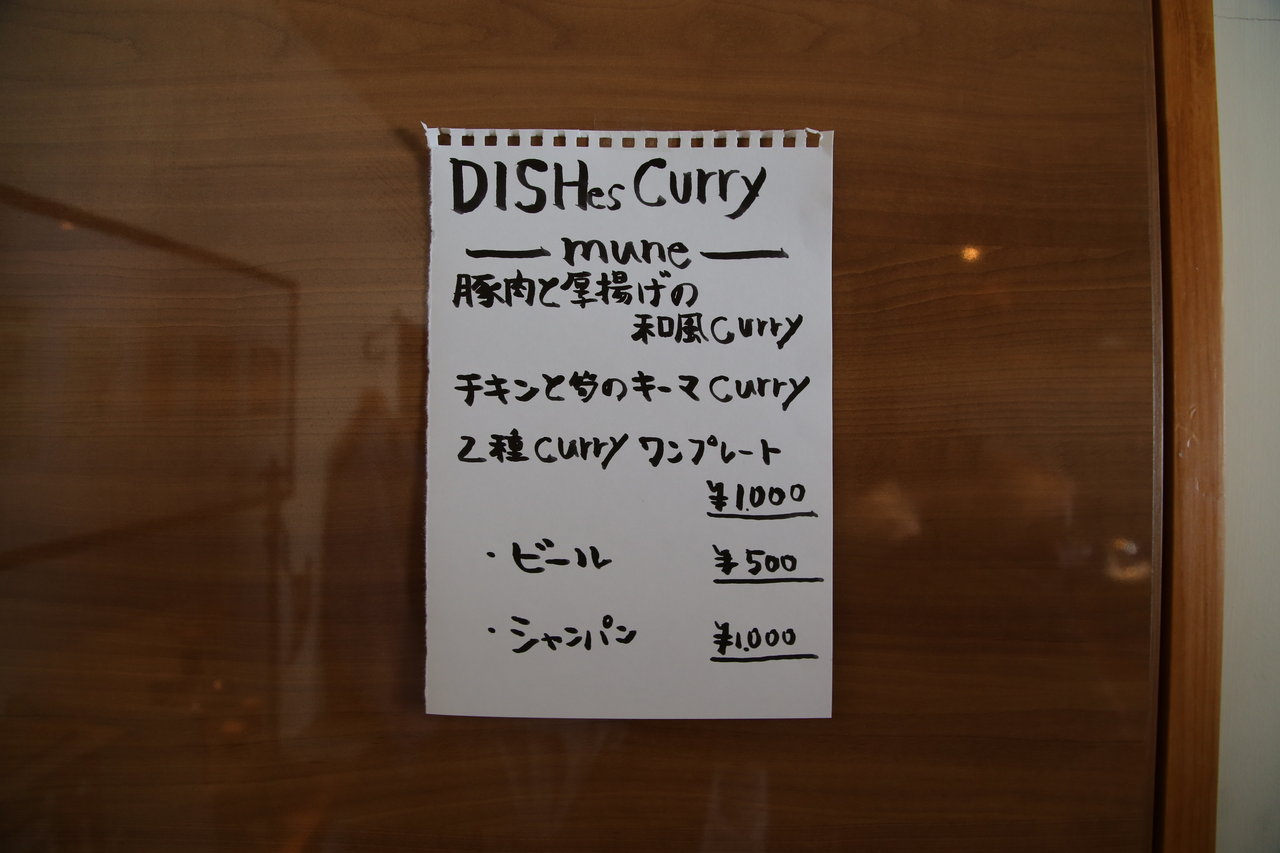 DISHes Curry
mune
豚肉と厚揚げの
和風Curry
チキンと筍のキーマCurry
2種Curry ワンプレート
¥1.000
・ビール ¥500
・シャンパン ¥1.000